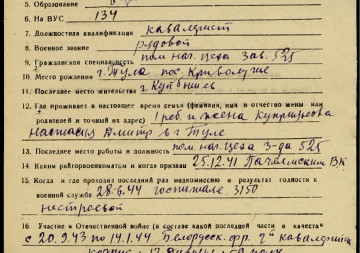 5. Образование
6. На ВУС 134
7. Должностная квалификация кавалерист
8. Военное звание рядовой
9. Гражданская специальность пом. нач. цеха зав. 525
10. Место рождения г. Тула пос. Криволучье
11. Последнее место жительства г. Куйбышев
12. Где проживает в настоящее время семья (фамилия, имя и отчество жены или
родителей и точный их адрес) 1 реб. и жена
Дмитр в г Туле
13. Последнее место работы и должность пом. нач. цеха з-да 525
14. Каким райгорвоенкоматом и когда призван 25.12.41 ВК
15. Когда и где проходил последний раз медкомиссию и результат годности к
военной службе 28.6.44 госпитале 3150
нестроевой
16. Участие в Отечественной войне (в составе какой последней части и в качестве
с 20.9.43 по 14.1.44 Белорусск. фр. 2й кавалерийск
корпус 17